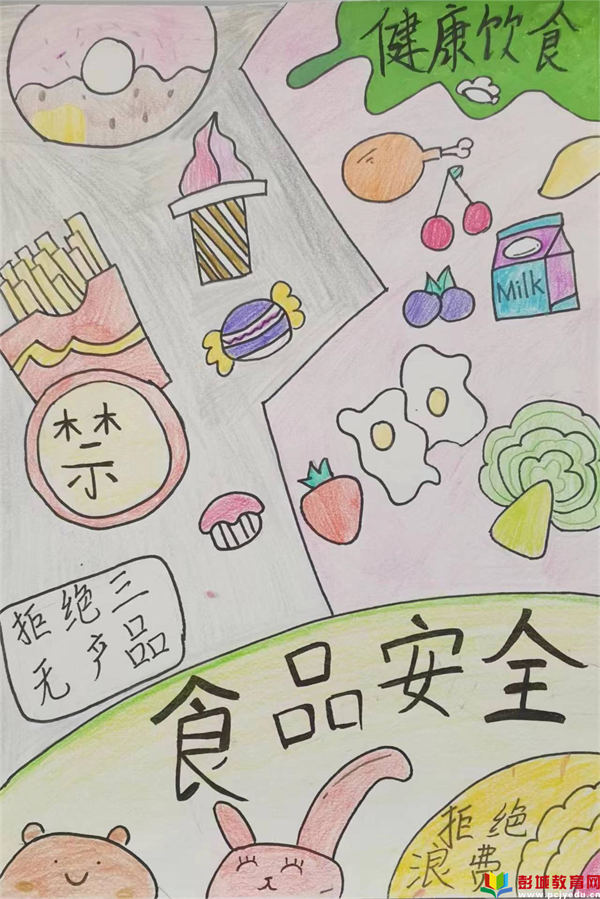 健康饮食
Milk
禁
拒绝三
无产品
食品安全
拒绝
浪费
彭城教育网
www.pcjyedu.cn